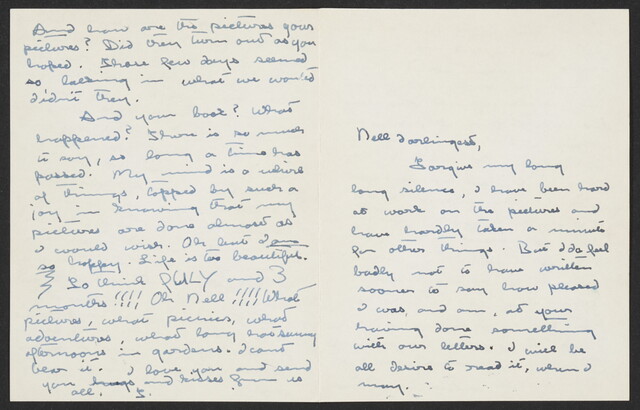 Nell darlingest,
Forgive my long
long silence, I have been hard
at work on the pictures and
have hardly taken a minute
for other things. But I do feel
badly not to have written
sooner to say how pleased
I was, and am, at your
having done something
with our letters. I will be
all desire to read it, when I
may.
And how are the pictures your
pictures? Did they turn out as you
hoped. Those few days seemed
so lacking in what we wanted
didn't they.
And your book? What
happened? There is so much
to say, so long a time has
passed. My mind is a whirl
of things, topped by such a
joy in knowing that my
pictures are done almost as
I would wish. Oh but I am
so happy. Life is too beautiful.
To think JULY and 3
months!!!! Oh Nell!!!! What
pictures, what picnics, what
adventures, what long hot sunny
afternoons in gardens. I cant
bear it. I love you and send
you hugs and kisses from us
all.